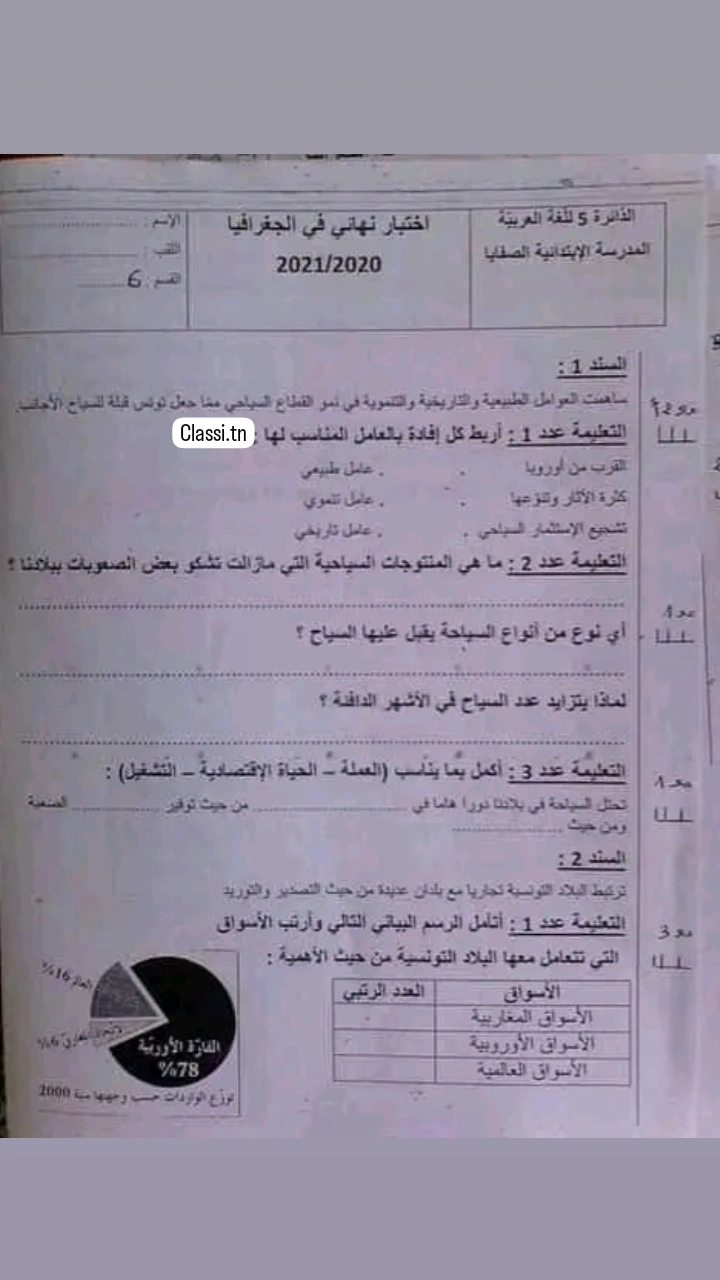 الدائرة 5 للغة العربية
المدرسة الإبتدائية الصفايا
اختبار نهائي في الجغرافيا
2021/2020
الإسم : ....................
اللقب : ....................
القسم : 6 ........
السند 1 :
ساهمت العوامل الطبيعية والتاريخية والتنموية في نمو القطاع السياحي مما جعل تونس قبلة للسياح الأجانب.
التعليمة عدد 1 : أربط كل إفادة بالعامل المناسب لها :
Classi.tn
القرب من أوروبا . . عامل طبيعي
كثرة الآثار وتنوعها . . عامل تنموي
تشجيع الإستثمار السياحي . . عامل تاريخي
التعليمة عدد 2 : ما هي المنتوجات السياحية التي مازالت تشكو بعض الصعوبات ببلادنا ؟
أي نوع من أنواع السياحة يقبل عليها السياح ؟
لماذا يتزايد عدد السياح في الأشهر الدافئة ؟
التعليمة عدد 3 : أكمل بما يناسب (العملة – الحياة الإقتصادية – التشغيل) :
تحتل السياحة في بلادنا دورا هاما في .................... من حيث توفير .................... الصعبة
ومن حيث ....................
السند 2 :
ترتبط البلاد التونسية تجاريا مع بلدان عديدة من حيث التصدير والتوريد
التعليمة عدد 1 : أتأمل الرسم البياني التالي وأرتب الأسواق
التي تتعامل معها البلاد التونسية من حيث الأهمية :
الأسواق العدد الرتبي
الأسواق المغاربية
الأسواق الأوروبية
الأسواق العالمية
16%
6%
القارة الأوربية
78%
توزع الواردات حسب وجهتها سنة 2000
مع 2
مع 1
مع 1
مع 3